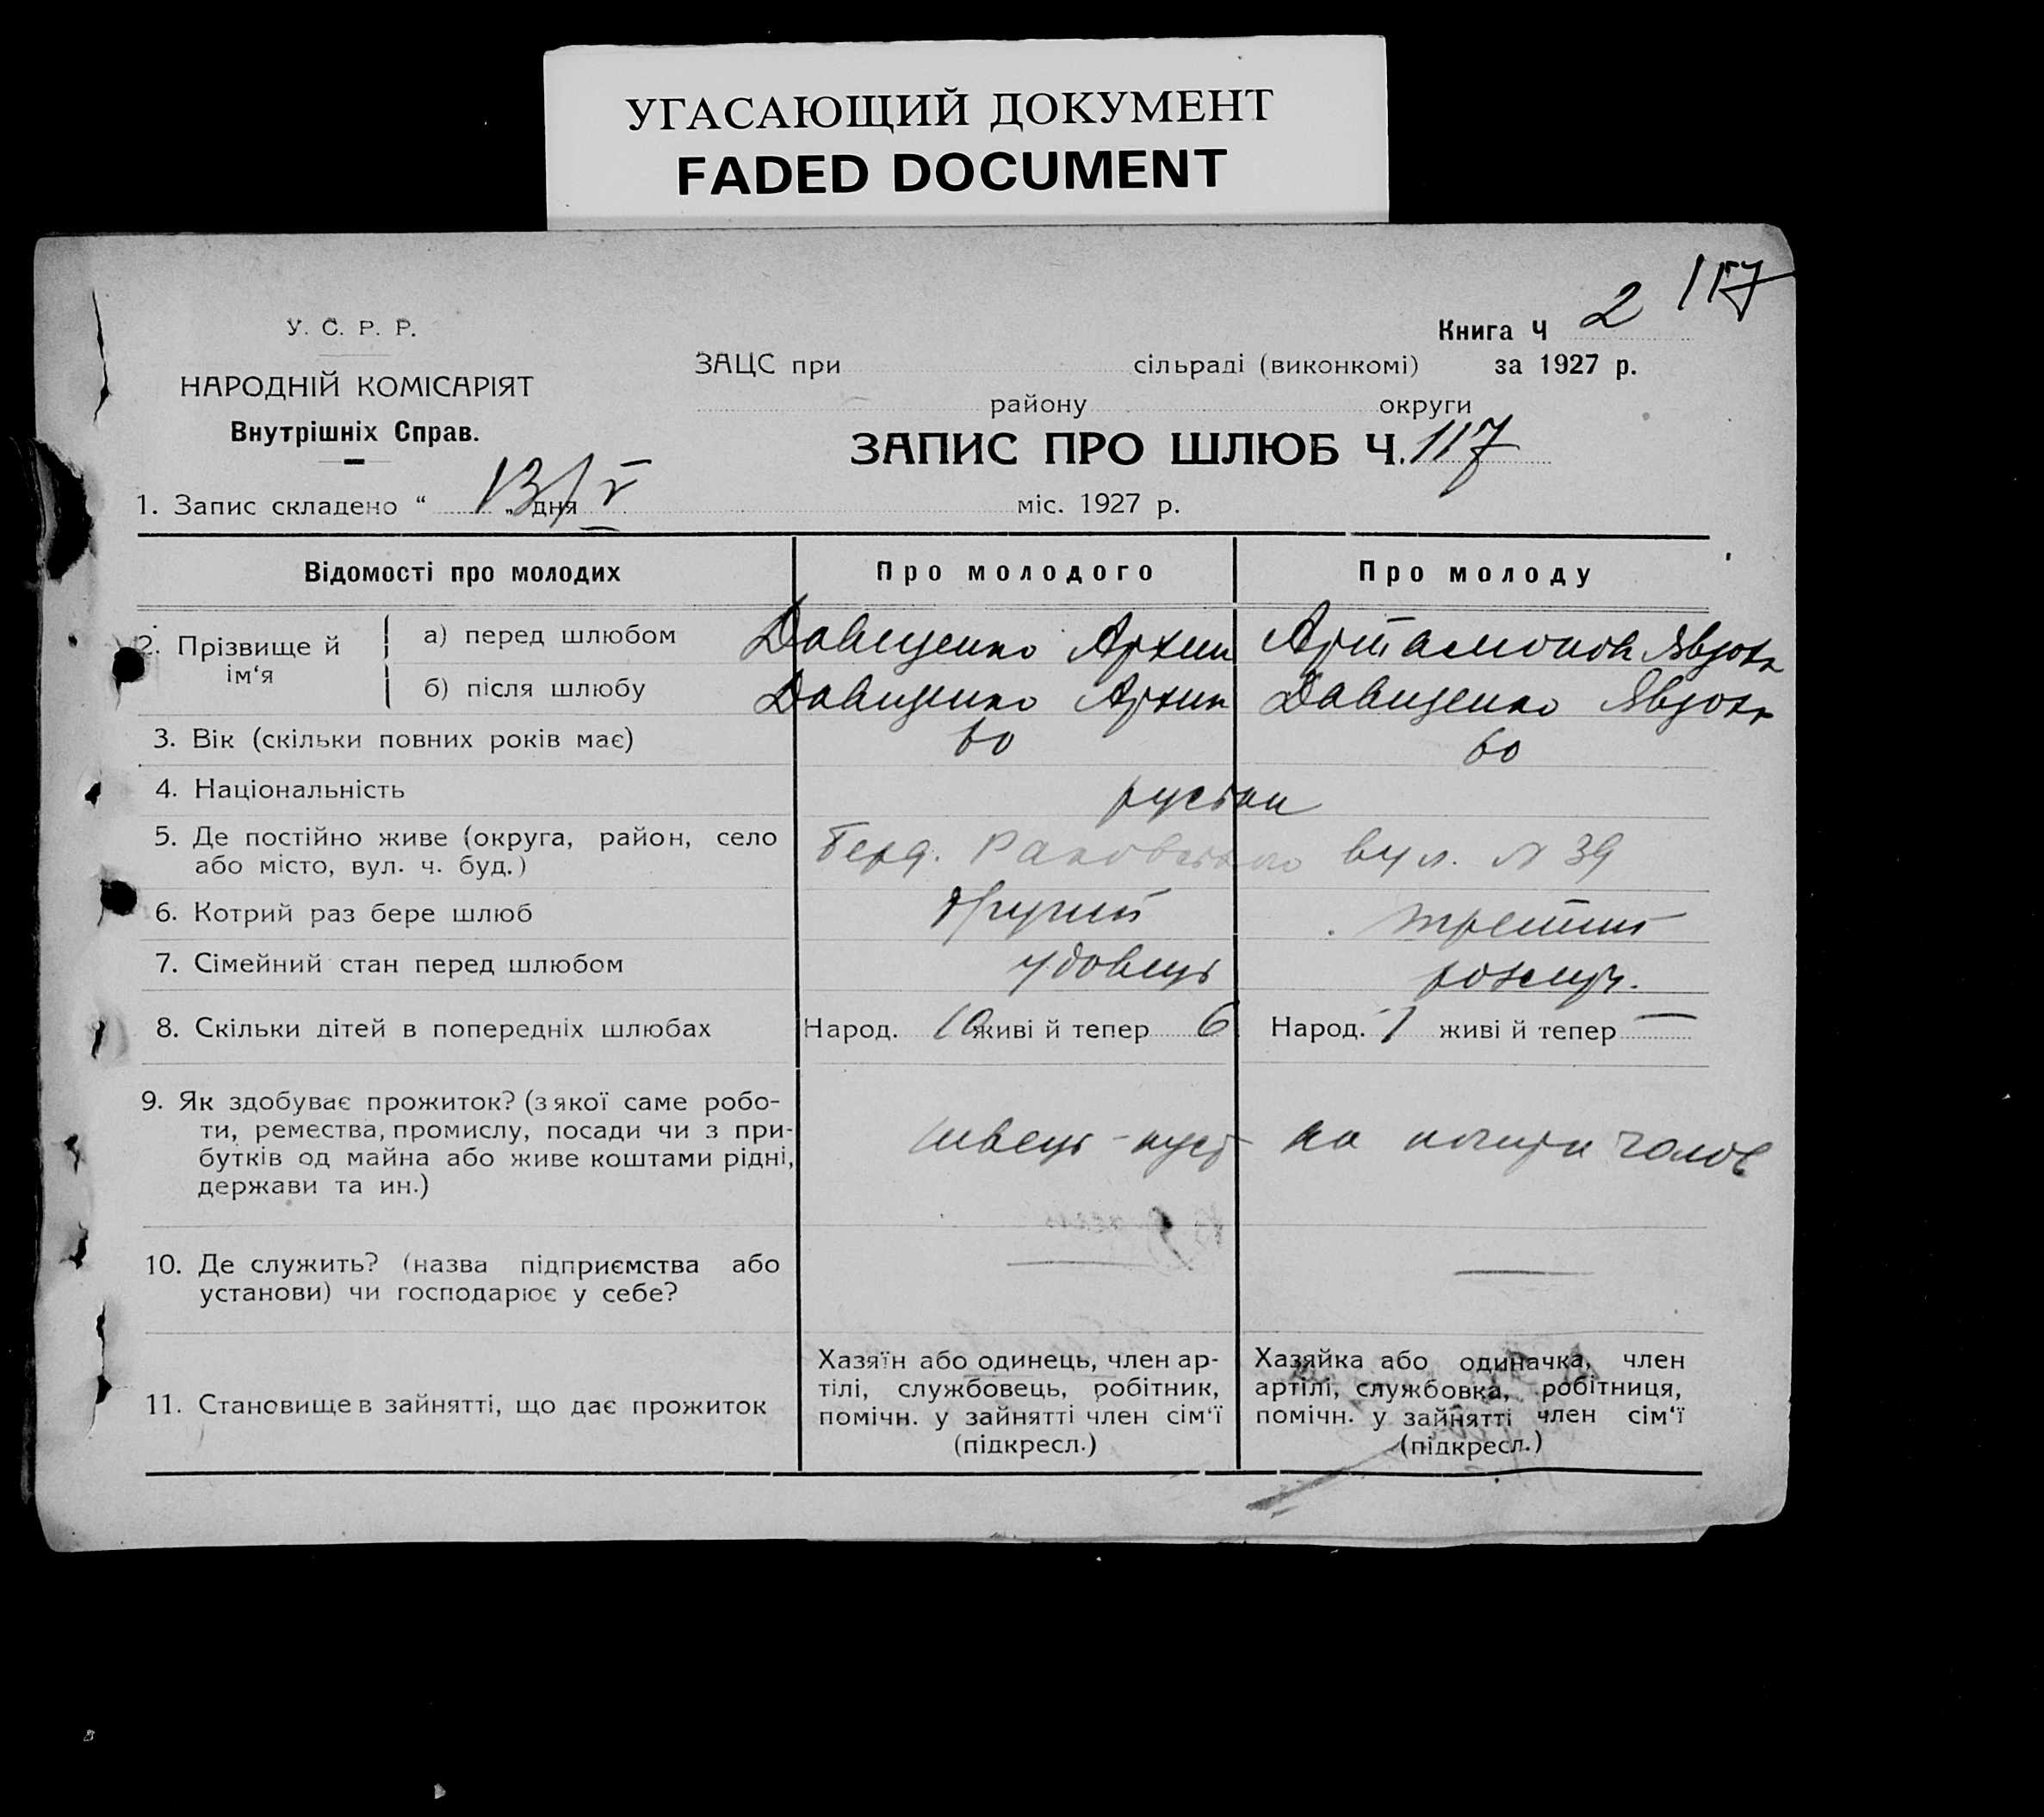 УГАСАЮЩИЙ ДОКУМЕНТ
FADED DOCUMENT
117
У. С. Р. Р.
НАРОДНІЙ КОМІСАРІЯТ
Внутрішніх Справ.
Книга Ч 2
ЗАЦС при сільраді (виконкомі) за 1927 р.
району округи
ЗАПИС ПРО ШЛЮБ Ч. 117
1. Запис складено “ 13/V „ дня міс. 1927 р.
Відомості про молодих Про молодого Про молоду
2. Прізвище й ім‘я
а) перед шлюбом Давиденко Архип Артамонова Явдоха
б) після шлюбу Давиденко Архип Давиденко Явдоха
3. Вік (скільки повних років має) 60 60
4. Національність руські
5. Де постійно живе (округа, район, село
або місто, вул. ч. буд.) Берд. Раковського вул. № 39
6. Котрий раз бере шлюб другий третий
7. Сімейний стан перед шлюбом удовець розлуч.
8. Скільки дітей в попередніх шлюбах Народ. 10 живі й тепер 6 Народ. 1 живі й тепер —
9. Як здобуває прожиток? (з якої саме робо-
ти, ремества, промислу, посади чи з при-
бутків од майна або живе коштами рідні,
держави та ин.)
швець - куст на кошти чолов
10. Де служить? (назва підприємства або
установи) чи господарює у себе? — —
11. Становище в зайнятті, що дає прожиток
Хазяїн або одинець, член ар-
тілі, службовець, робітник,
помічн. у зайнятті член сім‘ї
(підкресл.)
Хазяйка або одиначка, член
артілі, службовка, робітниця,
помічн. у зайнятті член сім‘ї
(підкресл.)